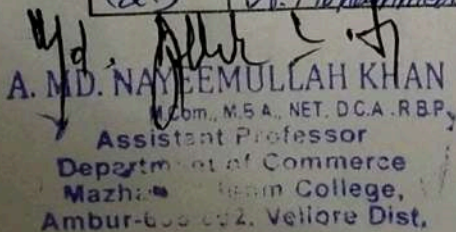 A. MD. NAYEEMULLAH KHAN
M.Com., M.B.A., NET. D.C.A. R.B.P.,
Assistant Professor
Department of Commerce
College,
Ambur- Vellore Dist,